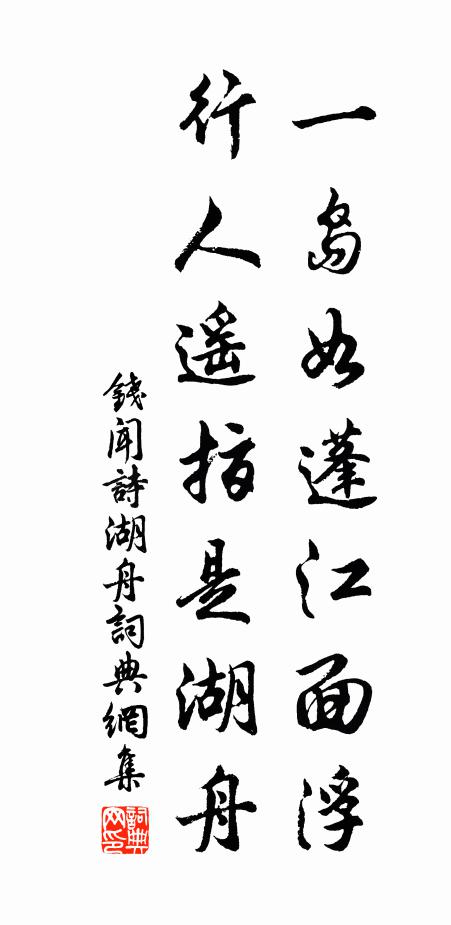 一島如蓬江面浮
行人遥指是湖舟
錢聞詩湖舟詞典網集
詞典网印